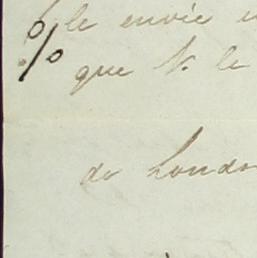 % le envie e
que V. le
de Londo